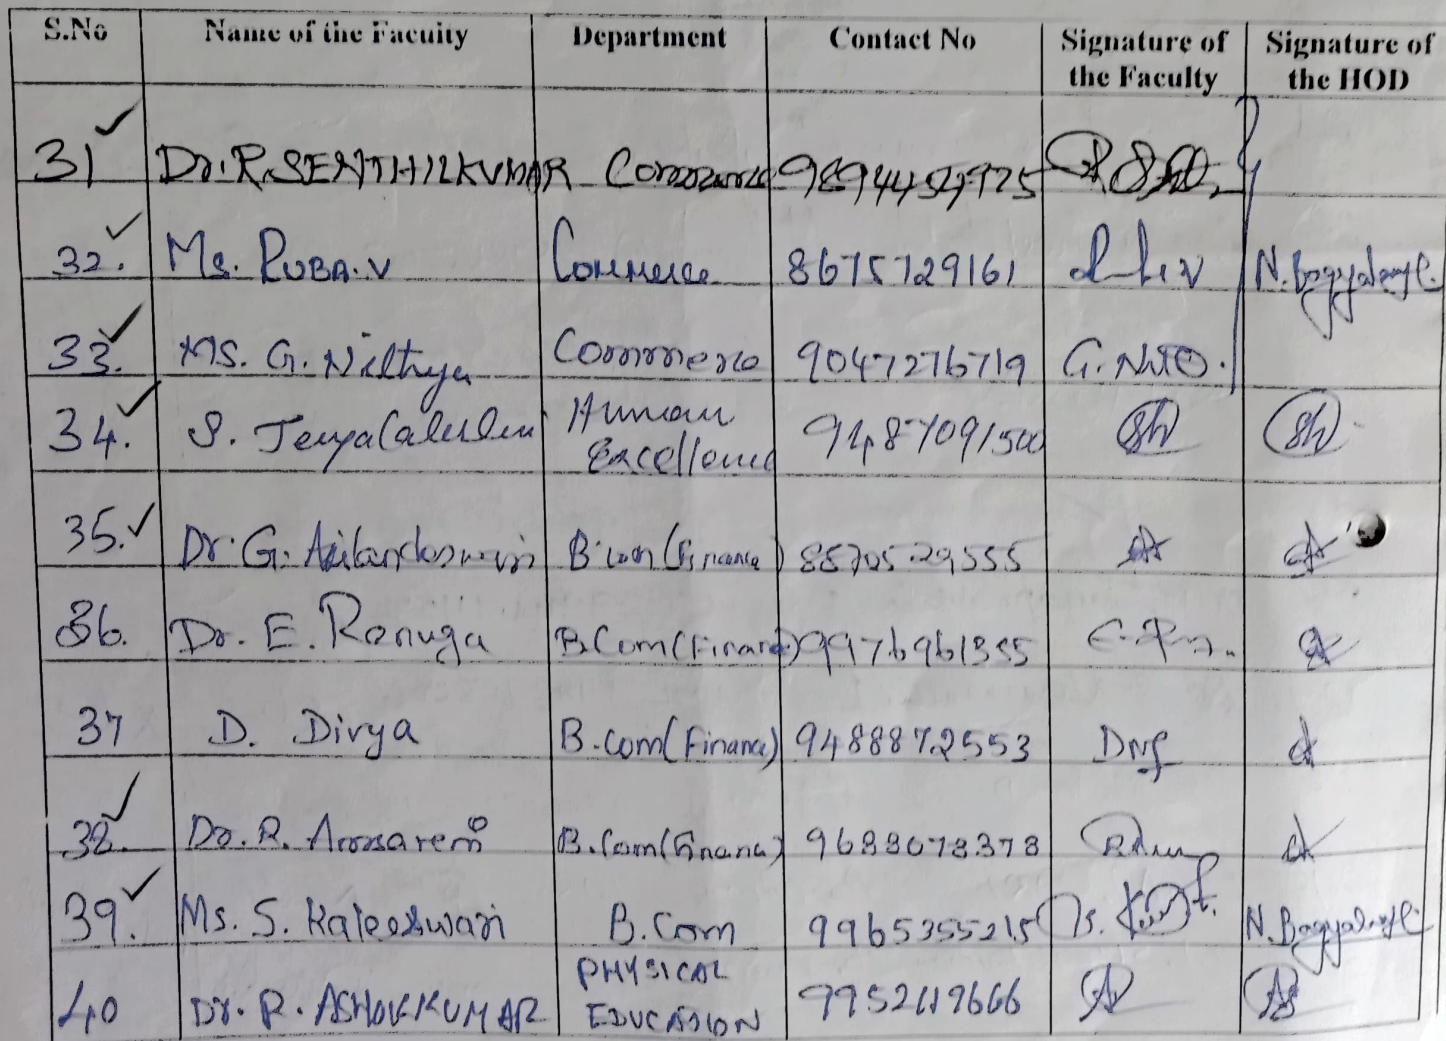 S.No Name of the Faculty Department Contact No Signature of the Faculty Signature of the HOD
31 Dr.R.SENTHILKUMAR Commerce 9894454975
32. Ms. RUBA.V Commerce 8675729161 N.Bagyalaxmi
33. MS. G. Nithya Commerce 9047276719 G. Nithya
34. S. Human Excellence 9487091500
35. Dr. G. Akilandeswari B.com (Finance) 8870529555
36. Dr. E. Renuga B.Com(Finance) 9976961355
37 D. Divya B.com(Finance) 9488872553
38. Dr. R. B.Com(Finance) 9688078378
39. Ms. S. Kaleeswari B.Com 9965355215 N.Bagyalaxmi
40 Dr. R. ASHOKKUMAR PHYSICAL EDUCATION 9952419666